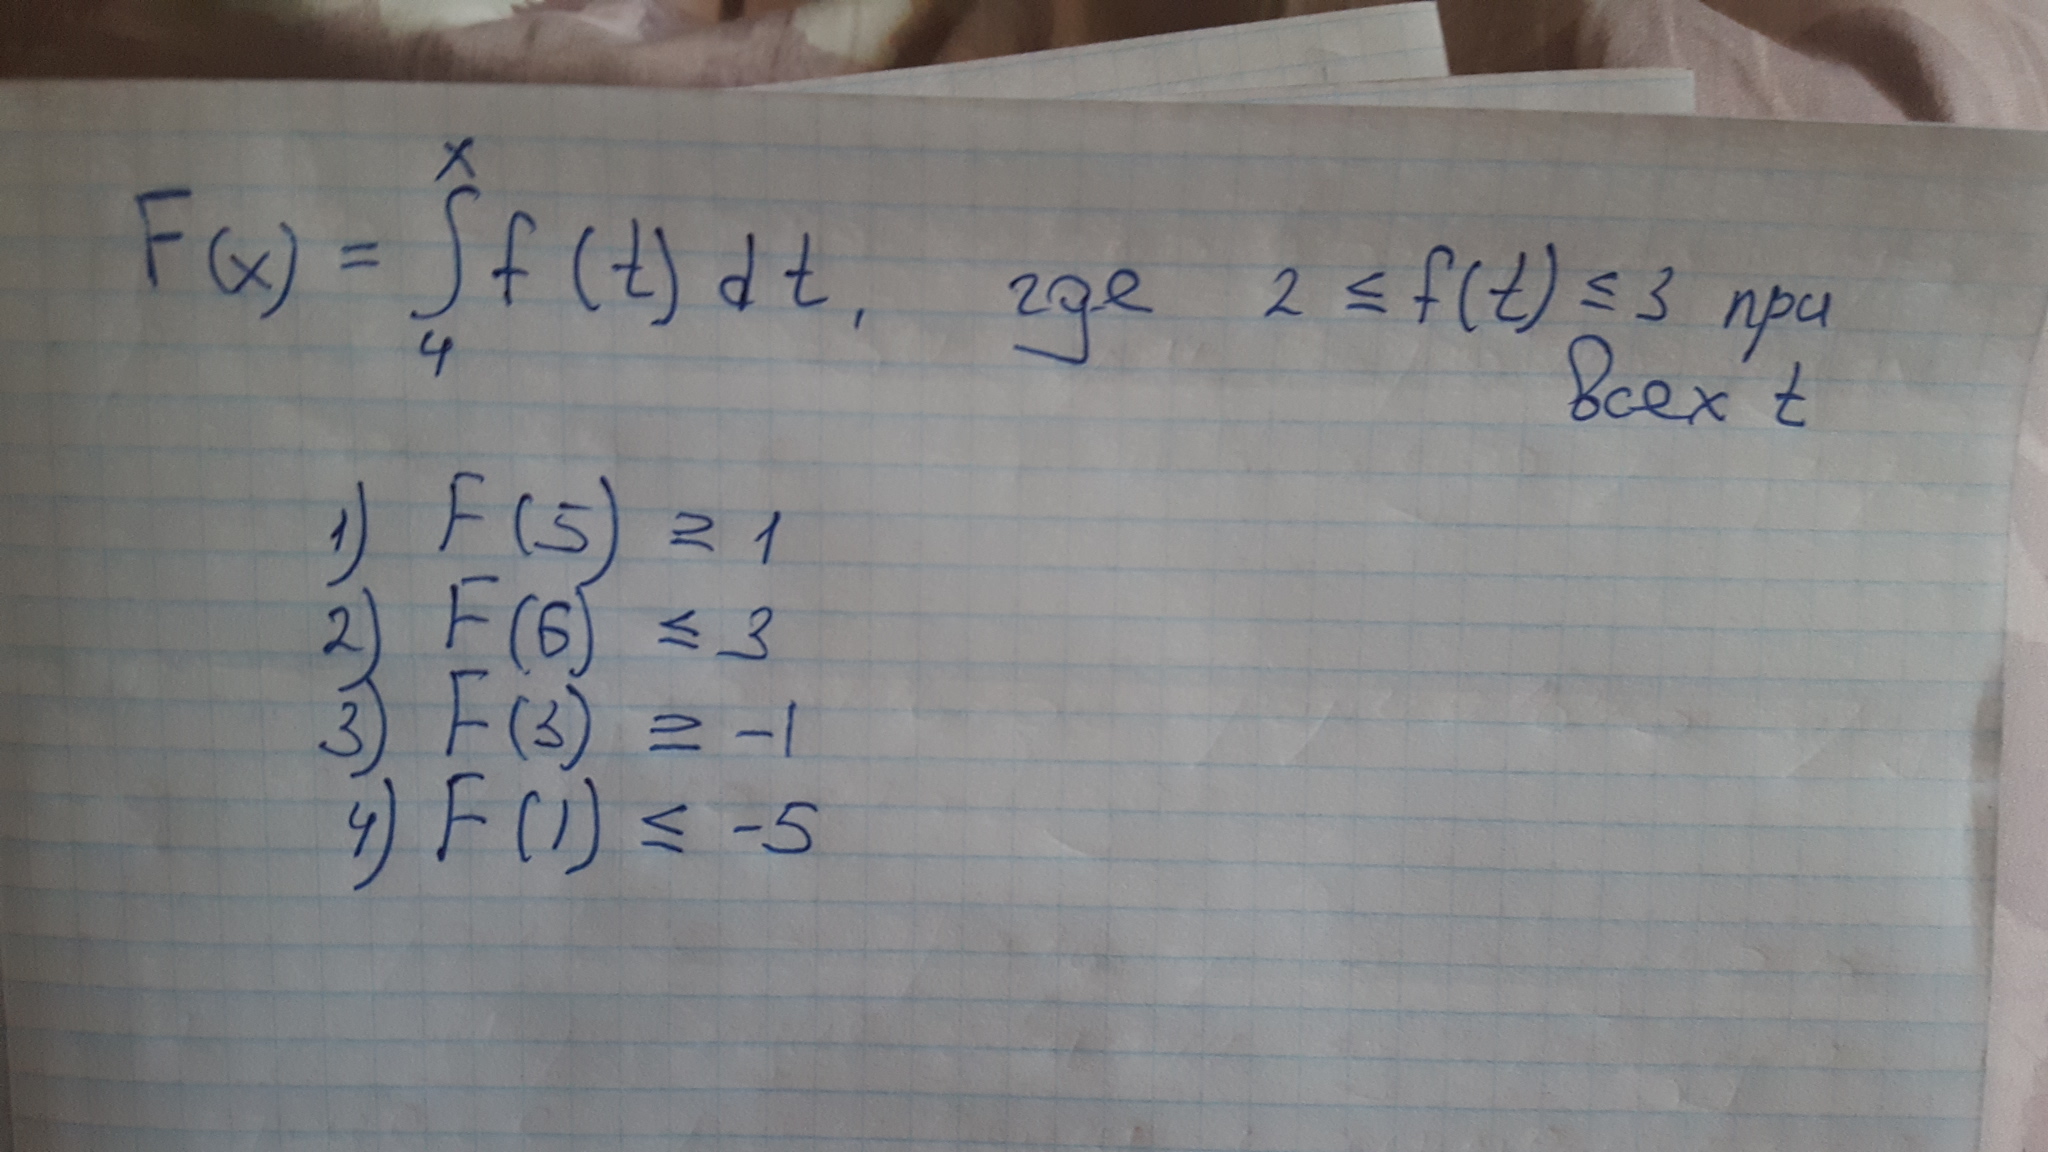 F(x) = ∫₄ˣ f(t) dt, где 2 ≤ f(t) ≤ 3 при
всех t
1) F(5) ≥ 1
2) F(6) ≤ 3
3) F(3) ≥ -1
4) F(1) ≤ -5